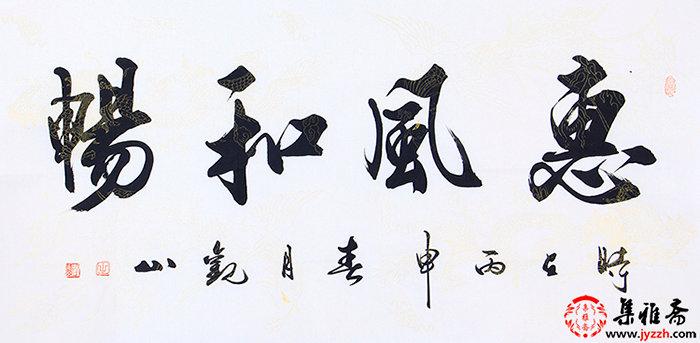 惠風和暢
時在丙申春月觀山
集雅斋
www.jyzzh.com